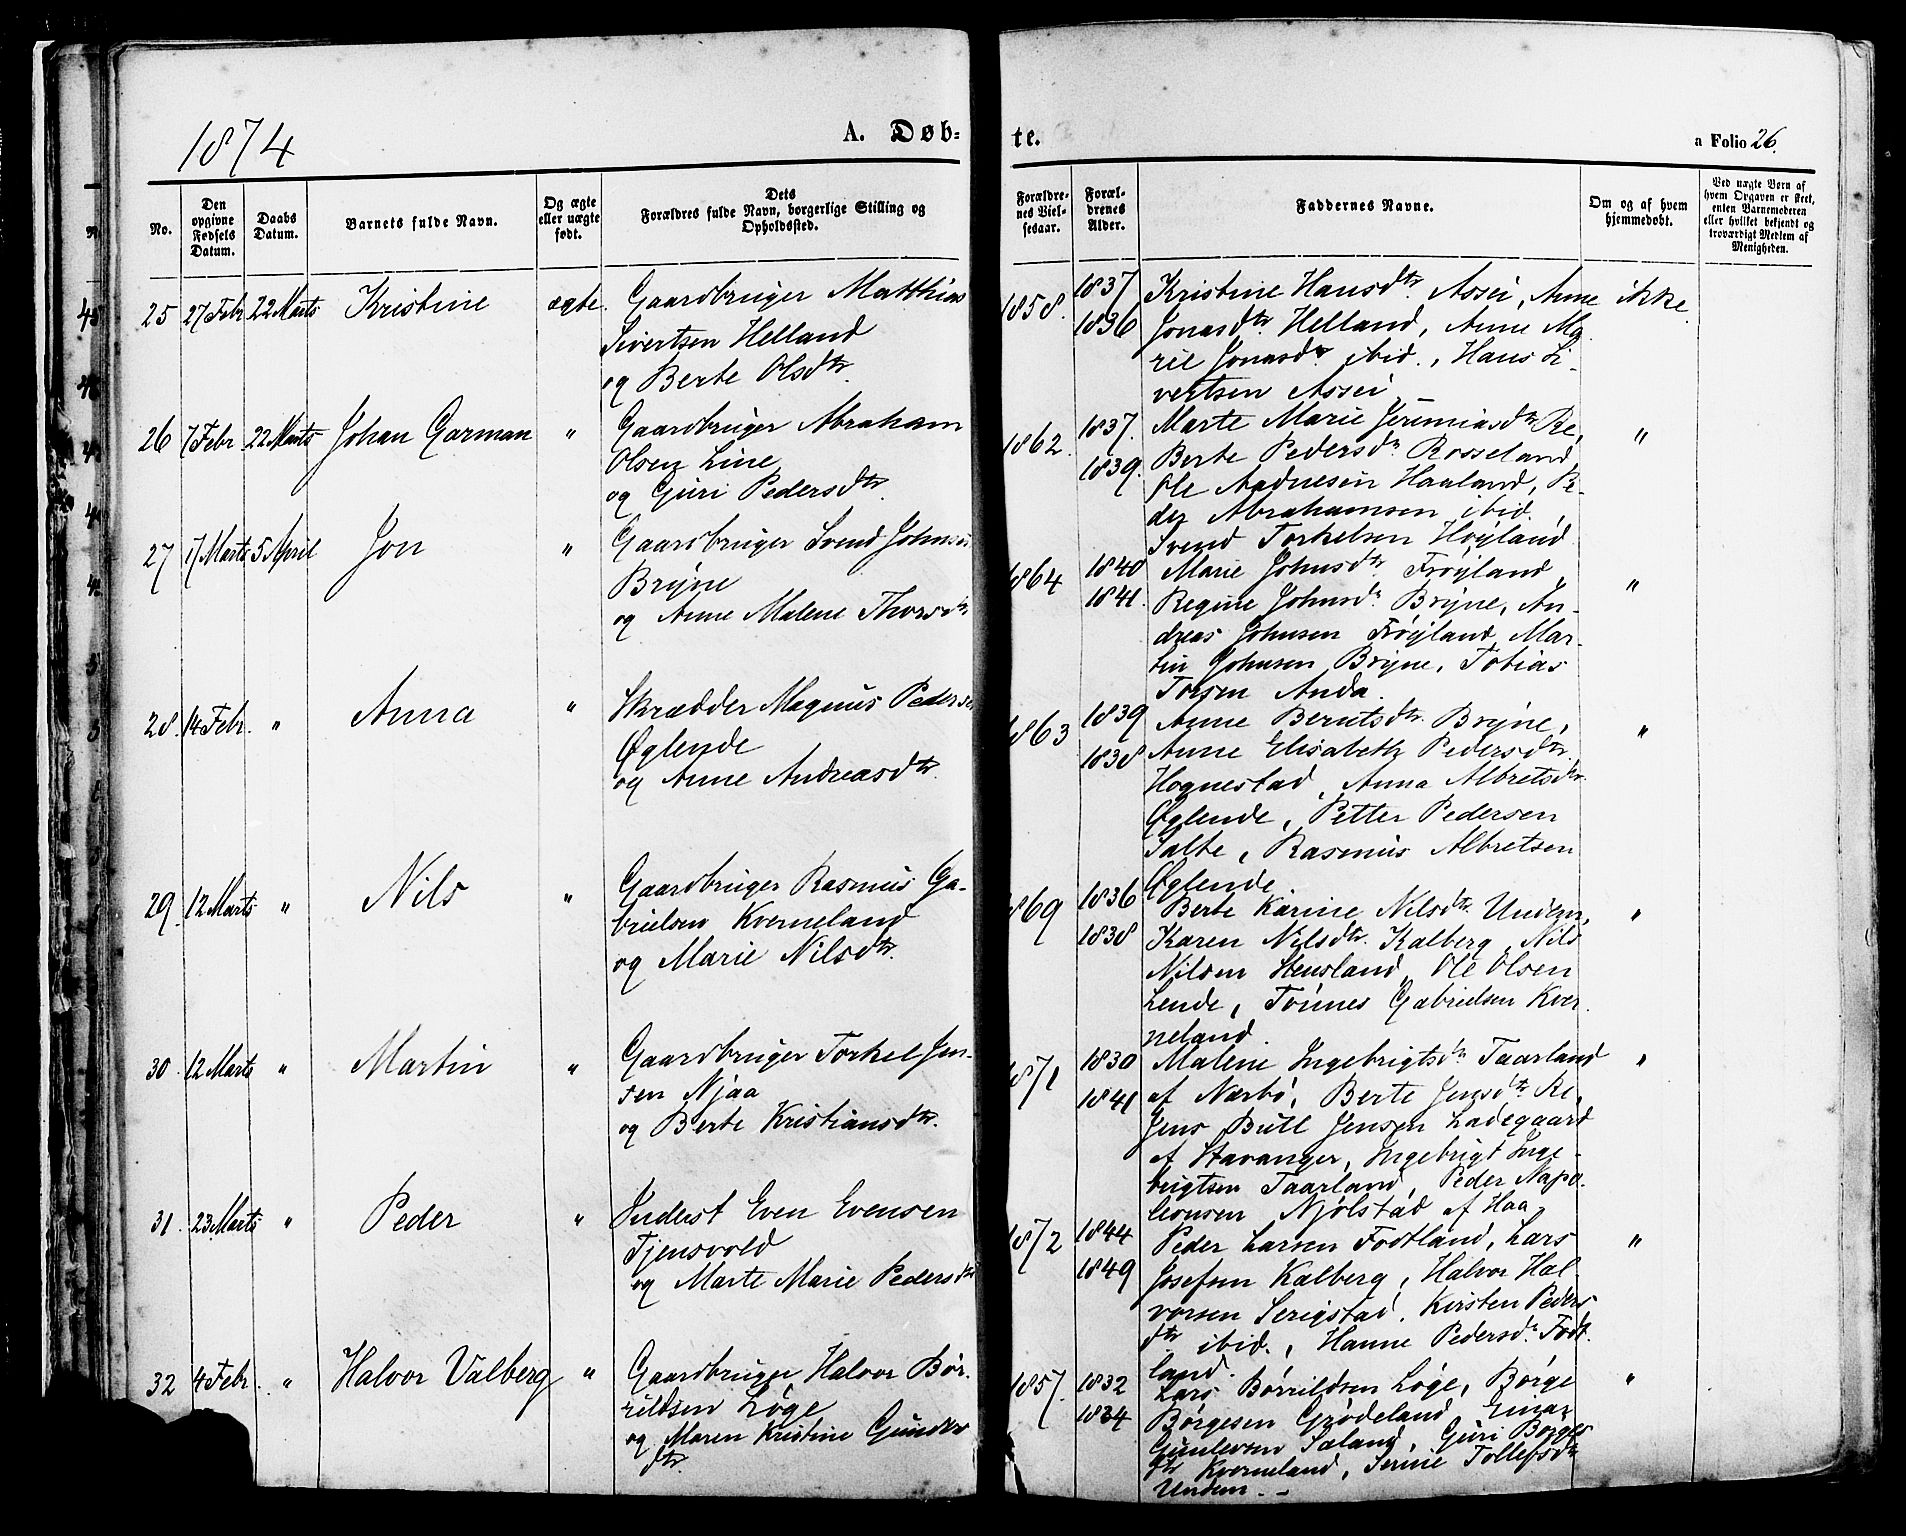 1874
A. Døb-
te.
a Folio 26.
No.
Den opgivne Fødsels Datum.
Daabs Datum.
Barnets fulde Navn.
Og ægte eller uægte født.
Dets Forældres fulde Navn, borgerlige Stilling og Opholdssted.
Forældre-nes Viel-sesaar.
Foræl-drenes Alder.
Faddernes Navne.
Om og af hvem hjemmedøbt.
Ved uægte Børn af hvem Opgaven er skeet, enten Barnemoderen eller hvilket bekjendt og troværdigt Medlem af Menigheden.
25 27 Febr 22 Marts Kristine ægte. Gaardbruger Matthias
Sivertsen Helland
og Berte Olsdtr.
1858. 1837 1836
Kristine Hansdtr. Assei, Anne
Jonasdtr Helland, Anne Ma
rie Jonasdtr ibid., Hans Si-
vertsen Assei
ikke.
26 7 Febr 22 Marts Johan Garman " Gaardbruger Abraham
Olsen Line
og Guri Pedersdtr.
1862. 1837. 1839.
Marte Marie Jeremiasdtr Re,
Berte Pedersdtr Rosseland
Ole Aadnesen Haaland, Pe-
der Abrahamsen ibid.,
Svend Torkelsen Høyland.
"
27 17 Marts 5 April Jon " Gaardbruger Svend Johnsen
Bryne
og Anne Malene Thorsdtr
1864 1840 1841.
Marie Johnsdtr Frøyland,
Regine Johnsdr. Bryne, An-
dreas Johnsen Frøyland, Mar-
tin Johnsen Bryne, Tobias
Torsen Anda.
"
28. 14 Febr. " Anna " Skrædder Magnus Pederse
Øglende
og Anne Andreasdtr.
1863 1839 1838
Anne Berntsdtr. Bryne,
Anne Elisabeth Pedersdtr.
Hognestad, Anna Albretsdtr.
Øglende, Petter Pedersen
Salte, Rasmus Albretsen
Øglende.
"
29. 12 Marts " Nils " Gaardbruger Rasmus Ga-
brielsen Kverneland
og Marie Nilsdtr.
1869 1836 1838
Berte Karine Nilsdtr. Undem,
Karen Nilsdtr. Kalberg, Nils
Nilsen Stensland, Ole Olsen
Lende, Tönnes Gabrielsen Kver
neland.
"
30. 12 Marts " Martin " Gaardbruger Torkel Jen-
sen Njaa
og Berte Kristiansdtr.
1871 1830 1841
Malene Ingebrigtsdtr Taarland
af Nærbø, Berte Jensdtr Re,
Jens Bull Jensen Ladegaard
af Stavanger, Ingebrigt Inge-
brigtsen Taarland, Peder Napo-
leonsen Njølstad af Haa,
"
31. 23 Marts " Peder " Inderst Even Evensen
Tjensvold
og Marte Marie Pedersdtr
1872 1844 1849
Peder Larsen Fodtland, Lars
Josefsen Kalberg, Halvor Hal-
vorsen Serigstad. Kirsten Peders-
dtr ibid., Hanne Pedersdr. Fodt.
land.
"
32 4 Febr. " Halvor Valberg " Gaardbruger Halvor Bør-
rildsen Løge
og Maren Kristine Gunders
dtr.
1857. 1832 1834
Lars Børrildsen Løge, Børge
Børgesen Grødeland, Einar
Gunlevsen Sæland, Guri Børges
dtr Kverneland, Serine Tollefsdtr
Undem. - -
"